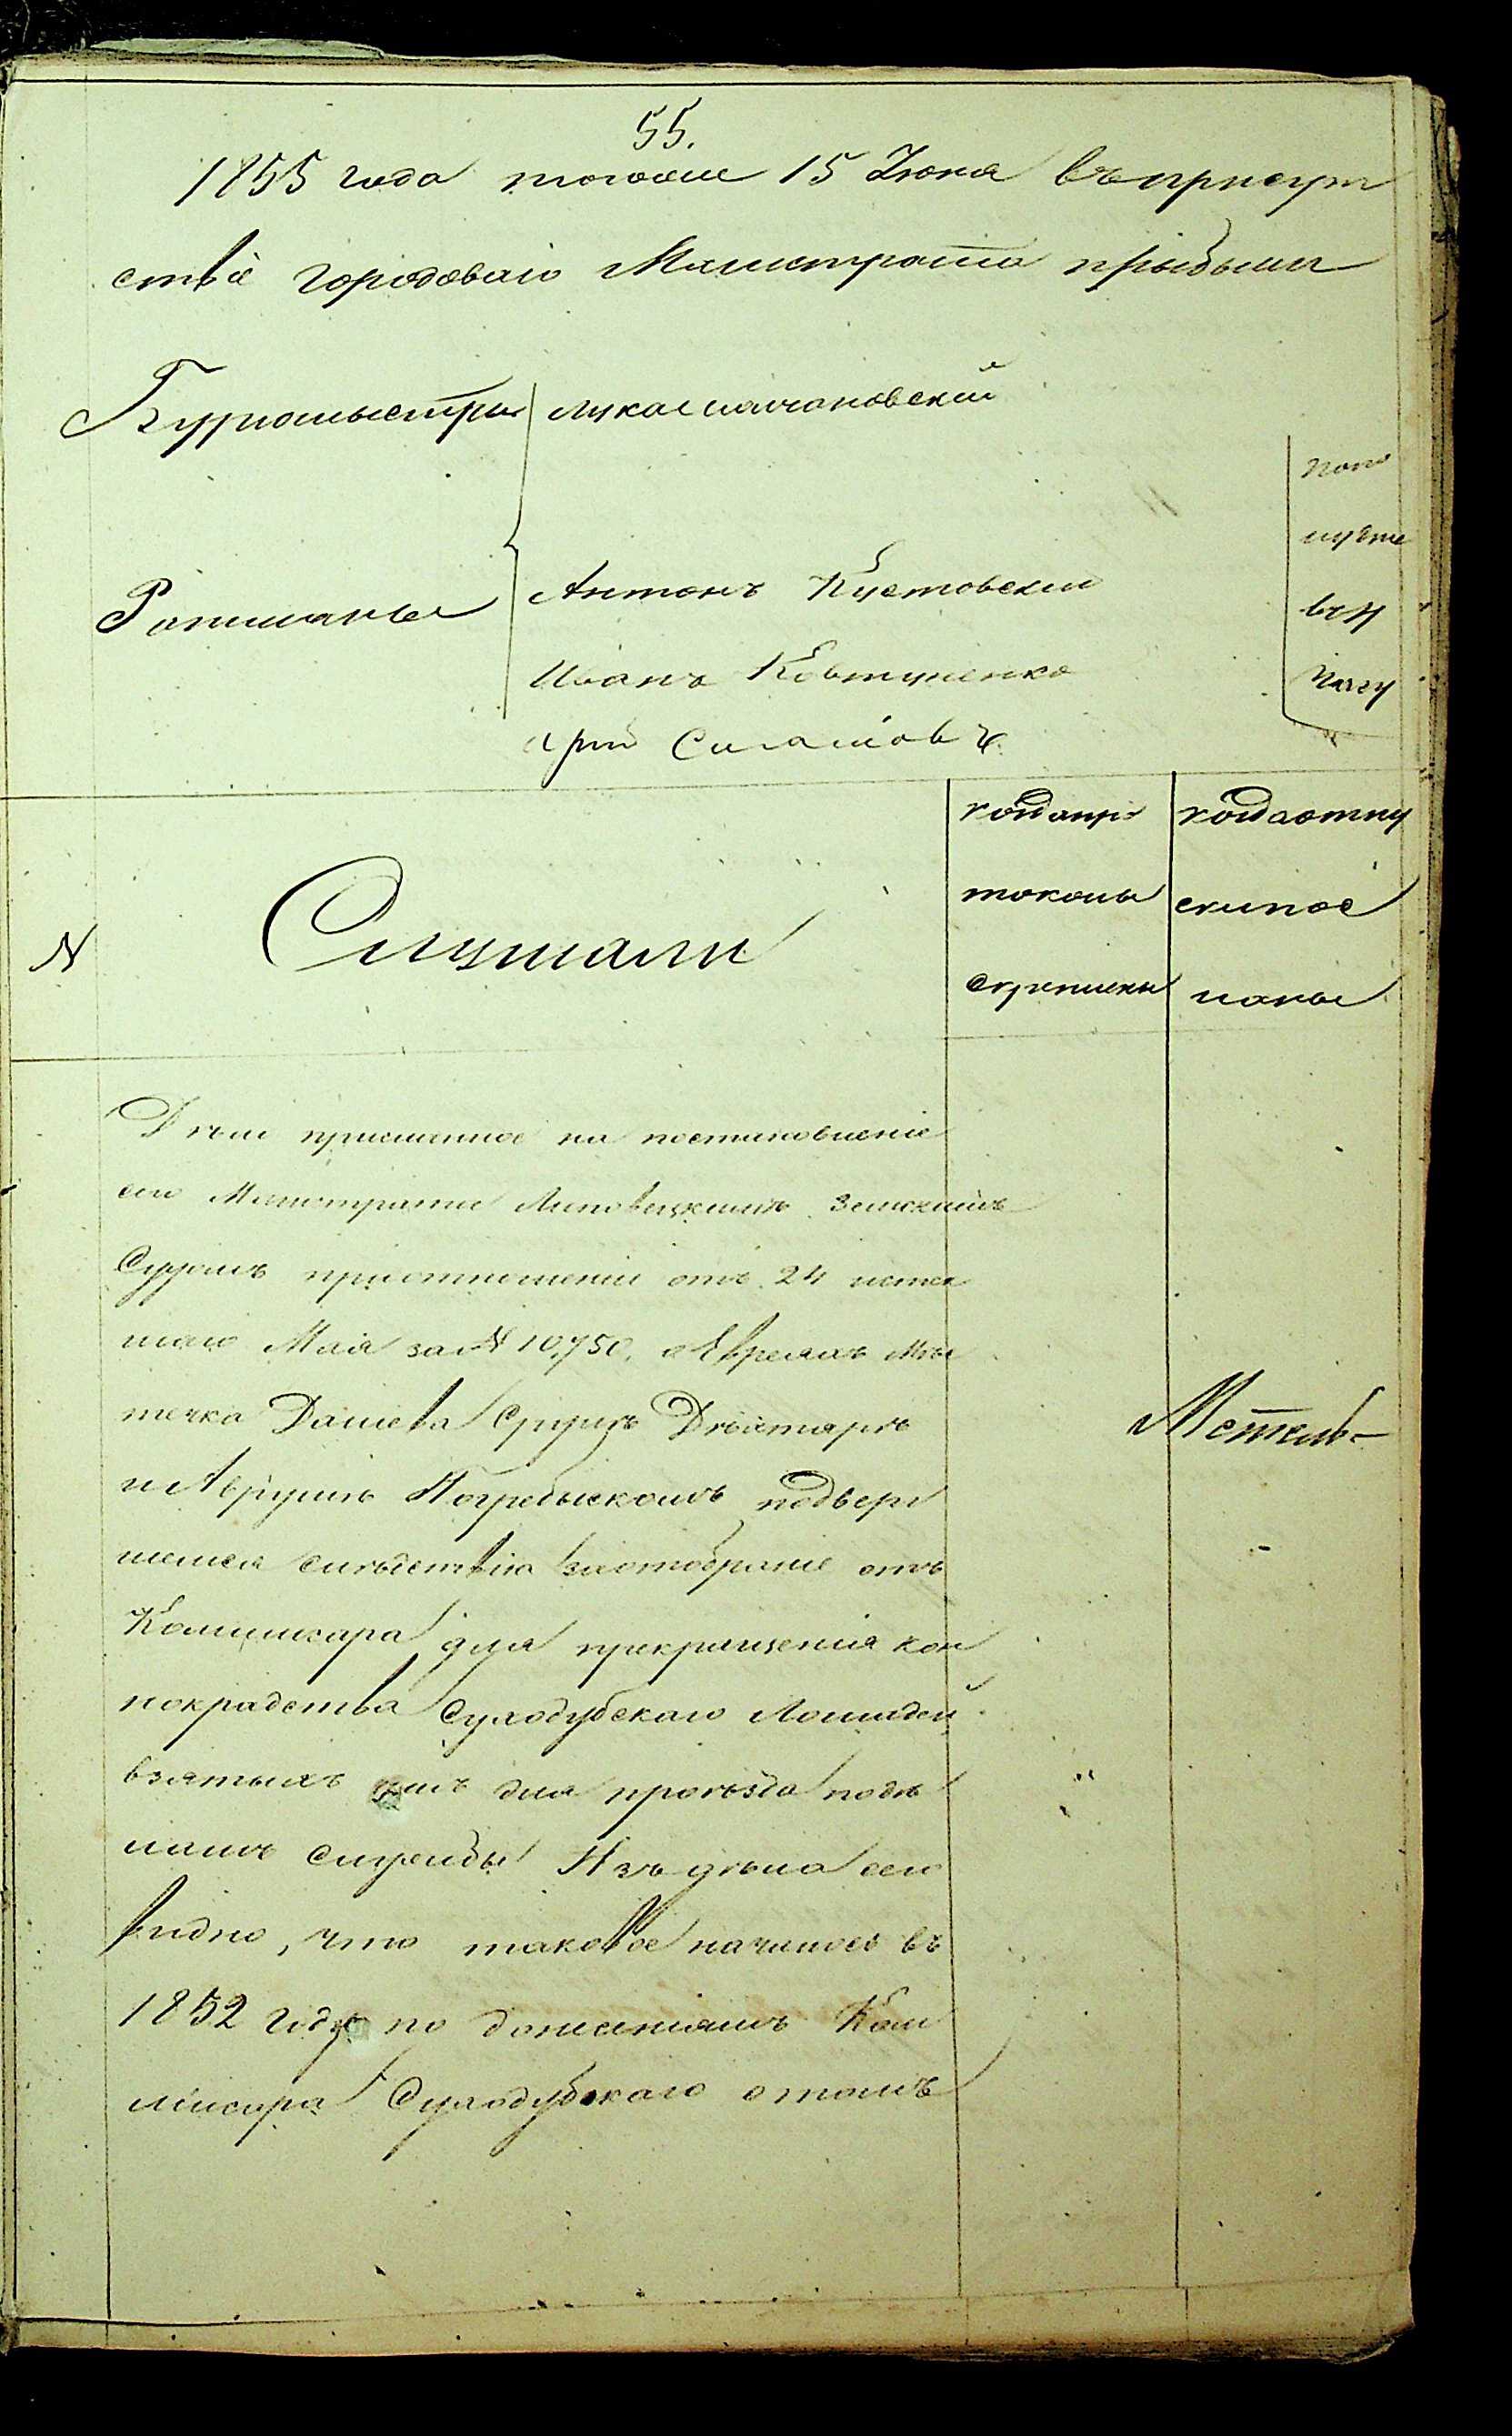 55.
1855 года тогоже 15 Июня въприсут
ствіе Городоваго Магистрата прибыли
Бургомыстры Лука
Ратманы
Антонъ Кустовскій
Иванъ Ковтуненко
при
попо
лудне
въ
часу
N
Слушали
когда про
токолы
скреплены
когда отпу
скипод
саны
Дѣло присланное на постановленіе
сего Магистрата Липовецкимъ Земскимъ
Судомъ приотношеніи отъ 24 истек
шаго Мая за N 10,750, о Евреяхъ Мѣс
течка Дашева Срулѣ Дехтярѣ
и Аврумѣ Погребыскомъ подверг
шемся слѣдствію заотобраніе отъ
Коммисара для прекращенія кон
нокрадства Суходубскаго Лошадей
взятыхъ имъ для проѣзда подѣ
ламъ службы Изъ дѣла сего
видно, что таковое началось въ
1852 году по донесеніямъ Ком
мисара Суходубскаго отомъ